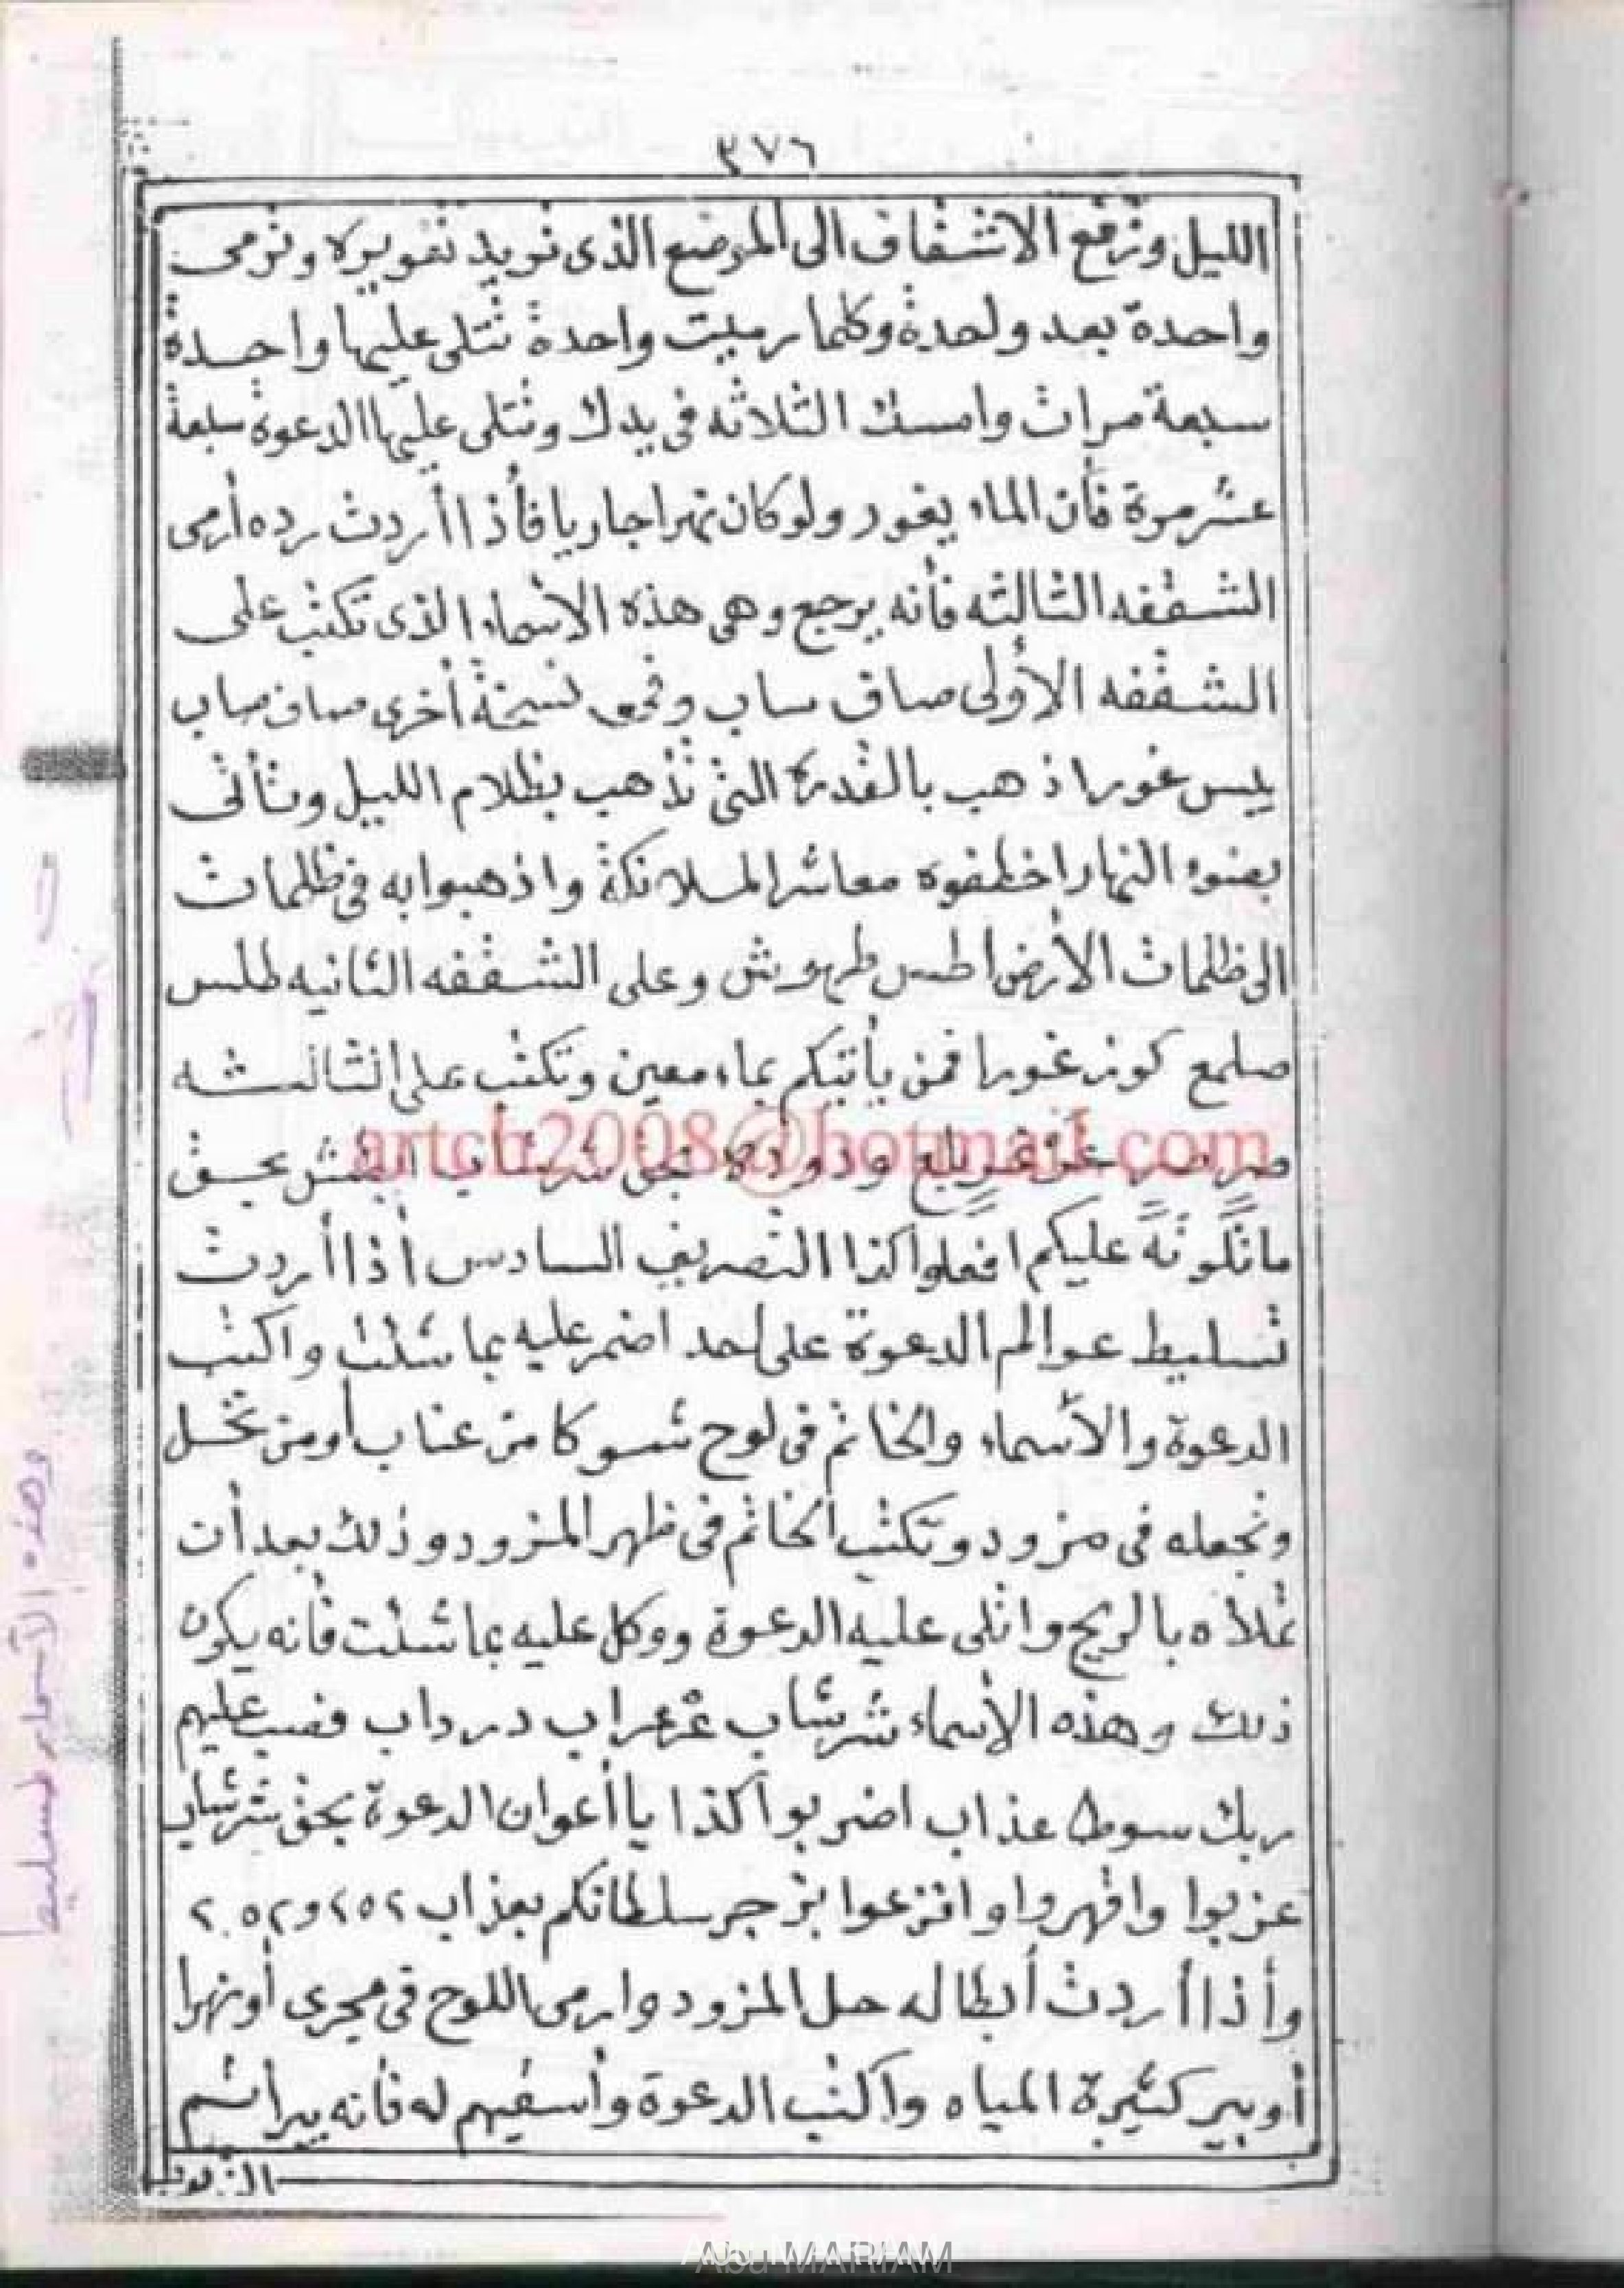 ٣٧٦
الليل وترفع الاشقاف الى الموضع الذى تريد تغويره وترمى
واحدة بعد واحدة وكلما رميت واحدة تتلى عليها واحدة
سبعة مرات وامسك الثلاثه فى يدك وتتلى عليها الدعوة سبعة
عشر مرة فأن الماء يغور ولو كان نهرا جاريا فأذا أردت رده أرمى
الشقفه الثالثه فأنه يرجع وهى هذه الاسماء الذى تكتب على
الشقفه الأولى صاق ساب وفى نسخة أخرى صاف صاب
يبس غورا ذهب بالقدرة التى تذهب بظلام الليل وتأتى
بضوء النهار اخطفوه معاشر الملائكة واذهبوا به فى ظلمات
الى ظلمات الأرض اطس طهوش وعلى الشقفه الثانيه طلس
صلمع كوند غورا فمن يأتيكم بماء معين وتكتب على الثالثه
artch2008@hotmail.com
بحق
عليكم افعلوا كذا التصريف السادس أذا أردت
تسليط عوالم الدعوة على احد اضمر عليه بما شئت واكتب
الدعوة والأسماء والخاتم فى لوح شوكا من عناب أو من نخل
وتجعله فى مزود وتكتب الخاتم فى ظهر المزود وذلك بعد أن
تملأه بالريح واتلى عليه الدعوة ووكل عليه بما شئت فأنه يكون
ذلك وهذه الأسماء شرشاب عزعراب درداب فصب عليهم
ربك سوط عذاب اضربوا كذا يا أعوان الدعوة بحق شرشاب
عزبوا واقهروا وانزعوا بزجر سلطانكم بعذاب ٢٥٢ و٢٥٢
وأذا أردت أبطاله حل المزود وارمى اللوح فى مجرى أو نهرا
أو بير كثيرة المياه واكتب الدعوة وأسقيهم له فأنه يبرا
وهذه الآسماء
Abu MARIAM